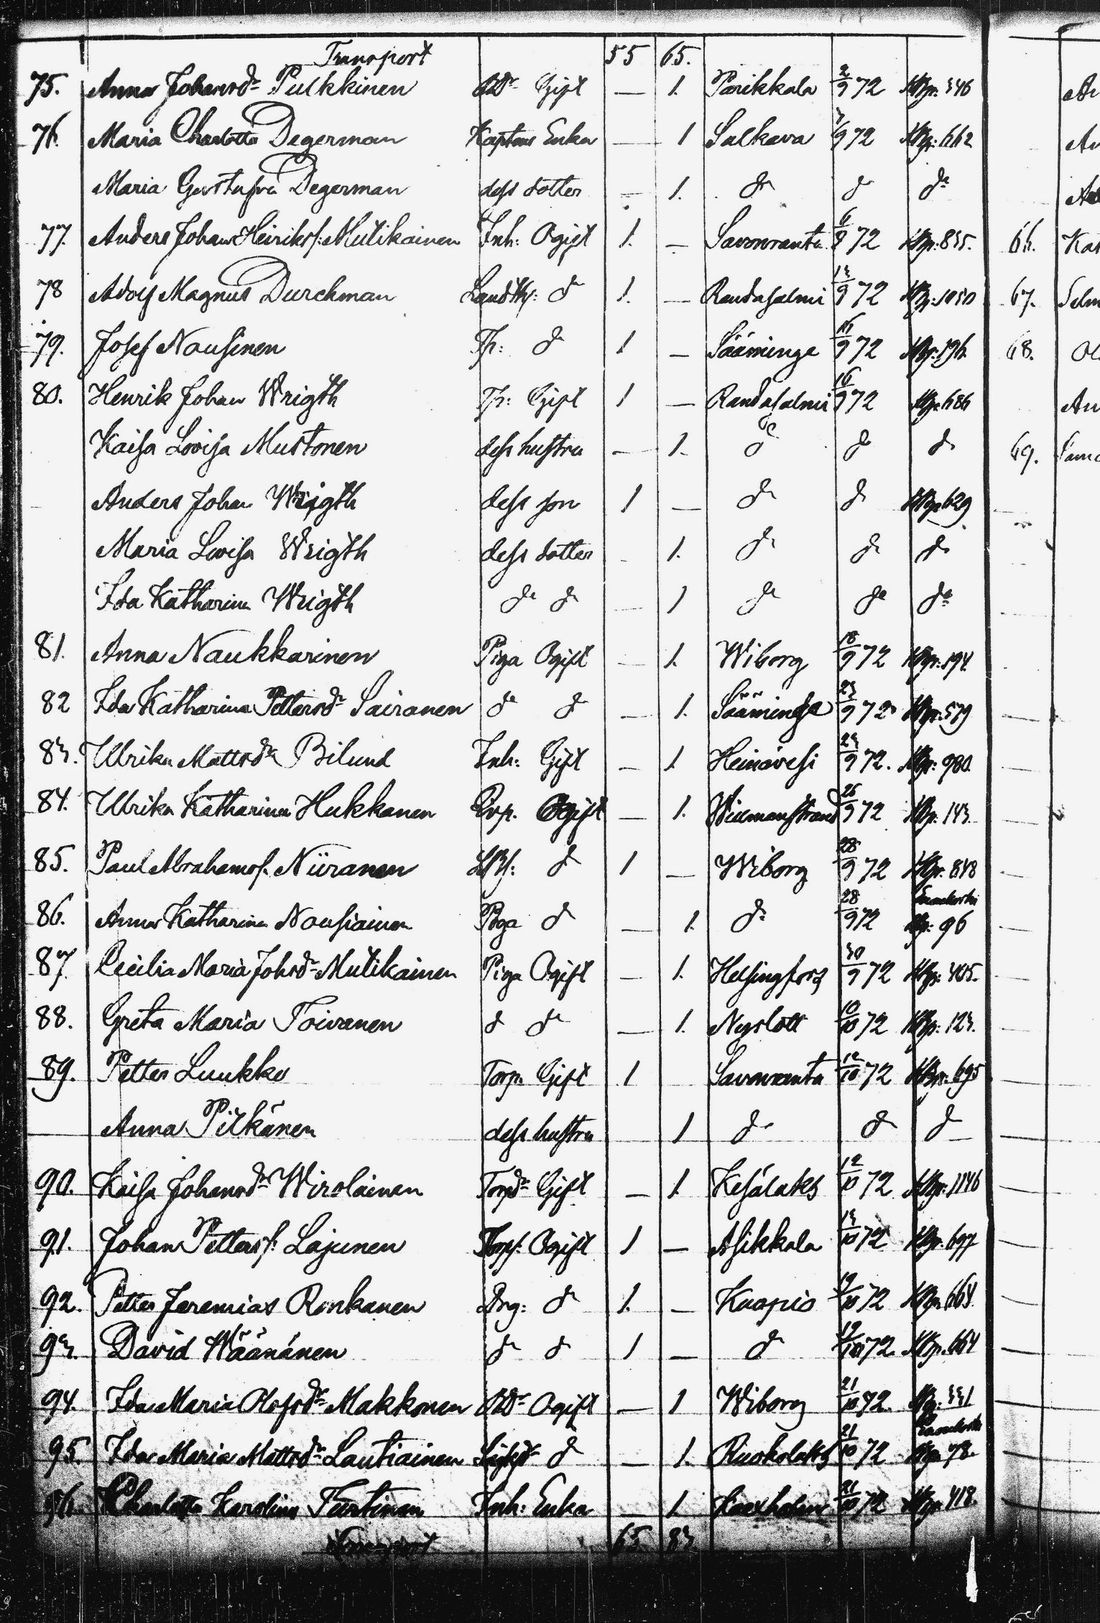 Transport 55 65.
75. Anna Johansdr Pulkkinen BDr Gift — 1. Parikkala 2/9 72 Kbp. 346
76. Maria Charlotta Degerman Kaptens Enka — 1 Sulkava 9 72 Kbp. 662
Maria Gustafva Degerman dess dotter — 1. do do do
77. Anders Johan Heinriksf. Mulikainen Inh: Ogift 1. — Savonranta 6/9 72 Kbp. 835.
78 Adolf Magnus Durchman do 1. — Randasalmi 13/9 72 Kbp. 1050
79. Josef Nousinen do 1 — Sääminge 16/9 72 Kbp. 196.
80. Henrik Johan Wrigth Gift 1 — Randasalmi 16/9 72 Kbp. 686
Kaisa Lovisa Mustonen dess hustru — 1. do do do
Anders Johan Wrigth dess son 1 — do do Kbp. 629
Maria Lovisa Wrigth dess dotter — 1. do do do
Ida Katharina Wrigth do do — 1 do do do
81. Anna Naukkarinen Piga Ogift — 1. Wiborg 18/9 72 Kbp. 194
82 Ida Katharina Pettersdr Sairanen do do — 1. Sääminge 23/9 72 Kbp. 579
83. Ulrika Mattsdr Bilund Inh: Gift — 1. Heinävesi 23/9 72. Kbp. 980
84. Ulrika Katharina Hukkanen Ogift — 1. Willmanstrand 26/9 72 Kbp. 143.
85. Paul Abrahamsf. Niiranen do 1 — Wiborg 28/9 72 Kbp. 848
86. Anna Katharina Nousiainen Piga do — 1. do 28/9 72 Kbp. 96
87. Cecilia Maria Johsdr Mulikainen Piga Ogift — 1. Helsingfors 30/9 72 Kbp. 405.
88. Greta Maria Toivanen do do — 1. Nyslott 10/10 72 Kbp. 123.
89. Petter Luukko Torp. Gift 1 Savonranta 12/10 72 Kbp. 695
Anna Pitkänen dess hustru 1 do do do
90. Kaisa Johansdr Wirolainen Torpdr Gift — 1. Kesälaks 12/10 72 Kbp. 1146
91. Johan Pettersf. Lajunen Torpf. Ogift 1 — Asikkala 13/10 72 Kbp. 697
92. Petter Jeremias Ronkanen Drg: do 1. — Kuopio 19/10 72 Kbp. 664
93. David Wäänänen do do 1 — do 19/10 72 Kbp. 664
94. Ida Maria Olofsdr Makkonen BDr Ogift — 1 Wiborg 21/10 72. Kbp. 331
95. Ida Maria Mattsdr Lautiainen do — 1. Ruokolaks 21/10 72 Kbp. 78
96. Charlotta Karolina Turtinen Inh: Enka — 1 Kexholm 21/10 72 Kbp. 418.
Transport 65. 83
66. Kat
67. Selm
68. Ol
An
69.